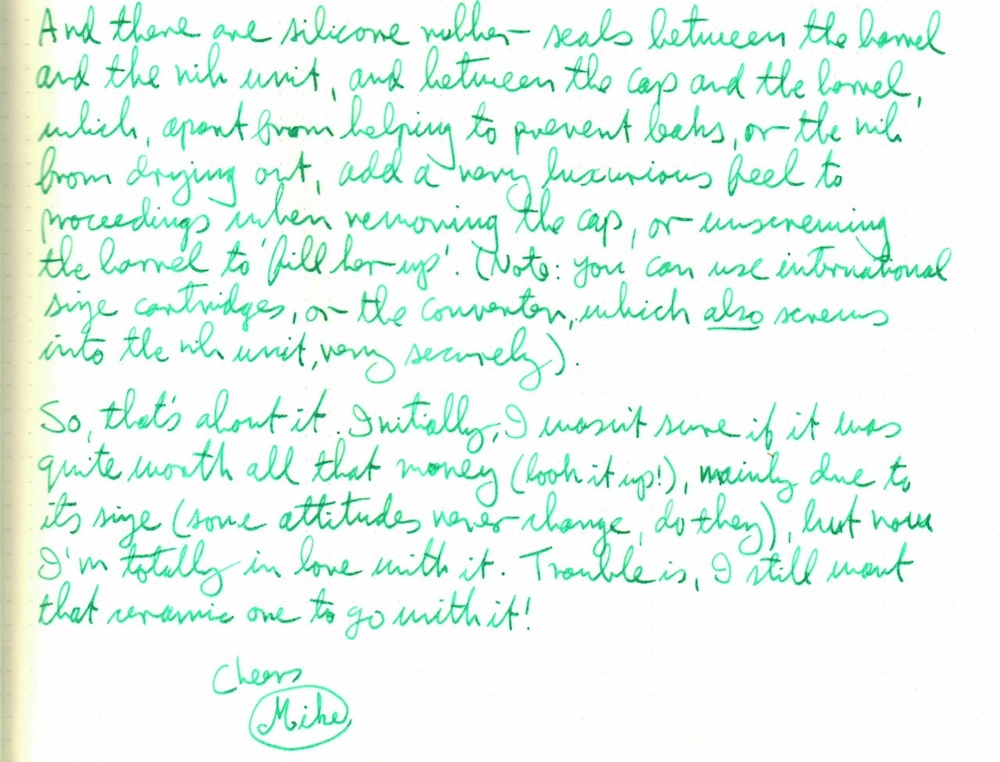 And there are silicone rubber seals between the barrel
and the nib unit, and between the cap and the barrel,
which, apart from helping to prevent leaks, or the nib
from drying out, add a very luxurious feel to
proceedings when removing the cap, or unscrewing
the barrel to 'fill her up'. (Note: you can use international
size cartridges, or the converter, which also screws
into the nib unit, very securely).
So, that's about it. Initially, I wasn't sure if it was
quite worth all that money (look it up!), mainly due to
its size (some attitudes never change, do they), but now
I'm totally in love with it. Trouble is, I still want
that ceramic one to go with it!
Cheers
Mike,